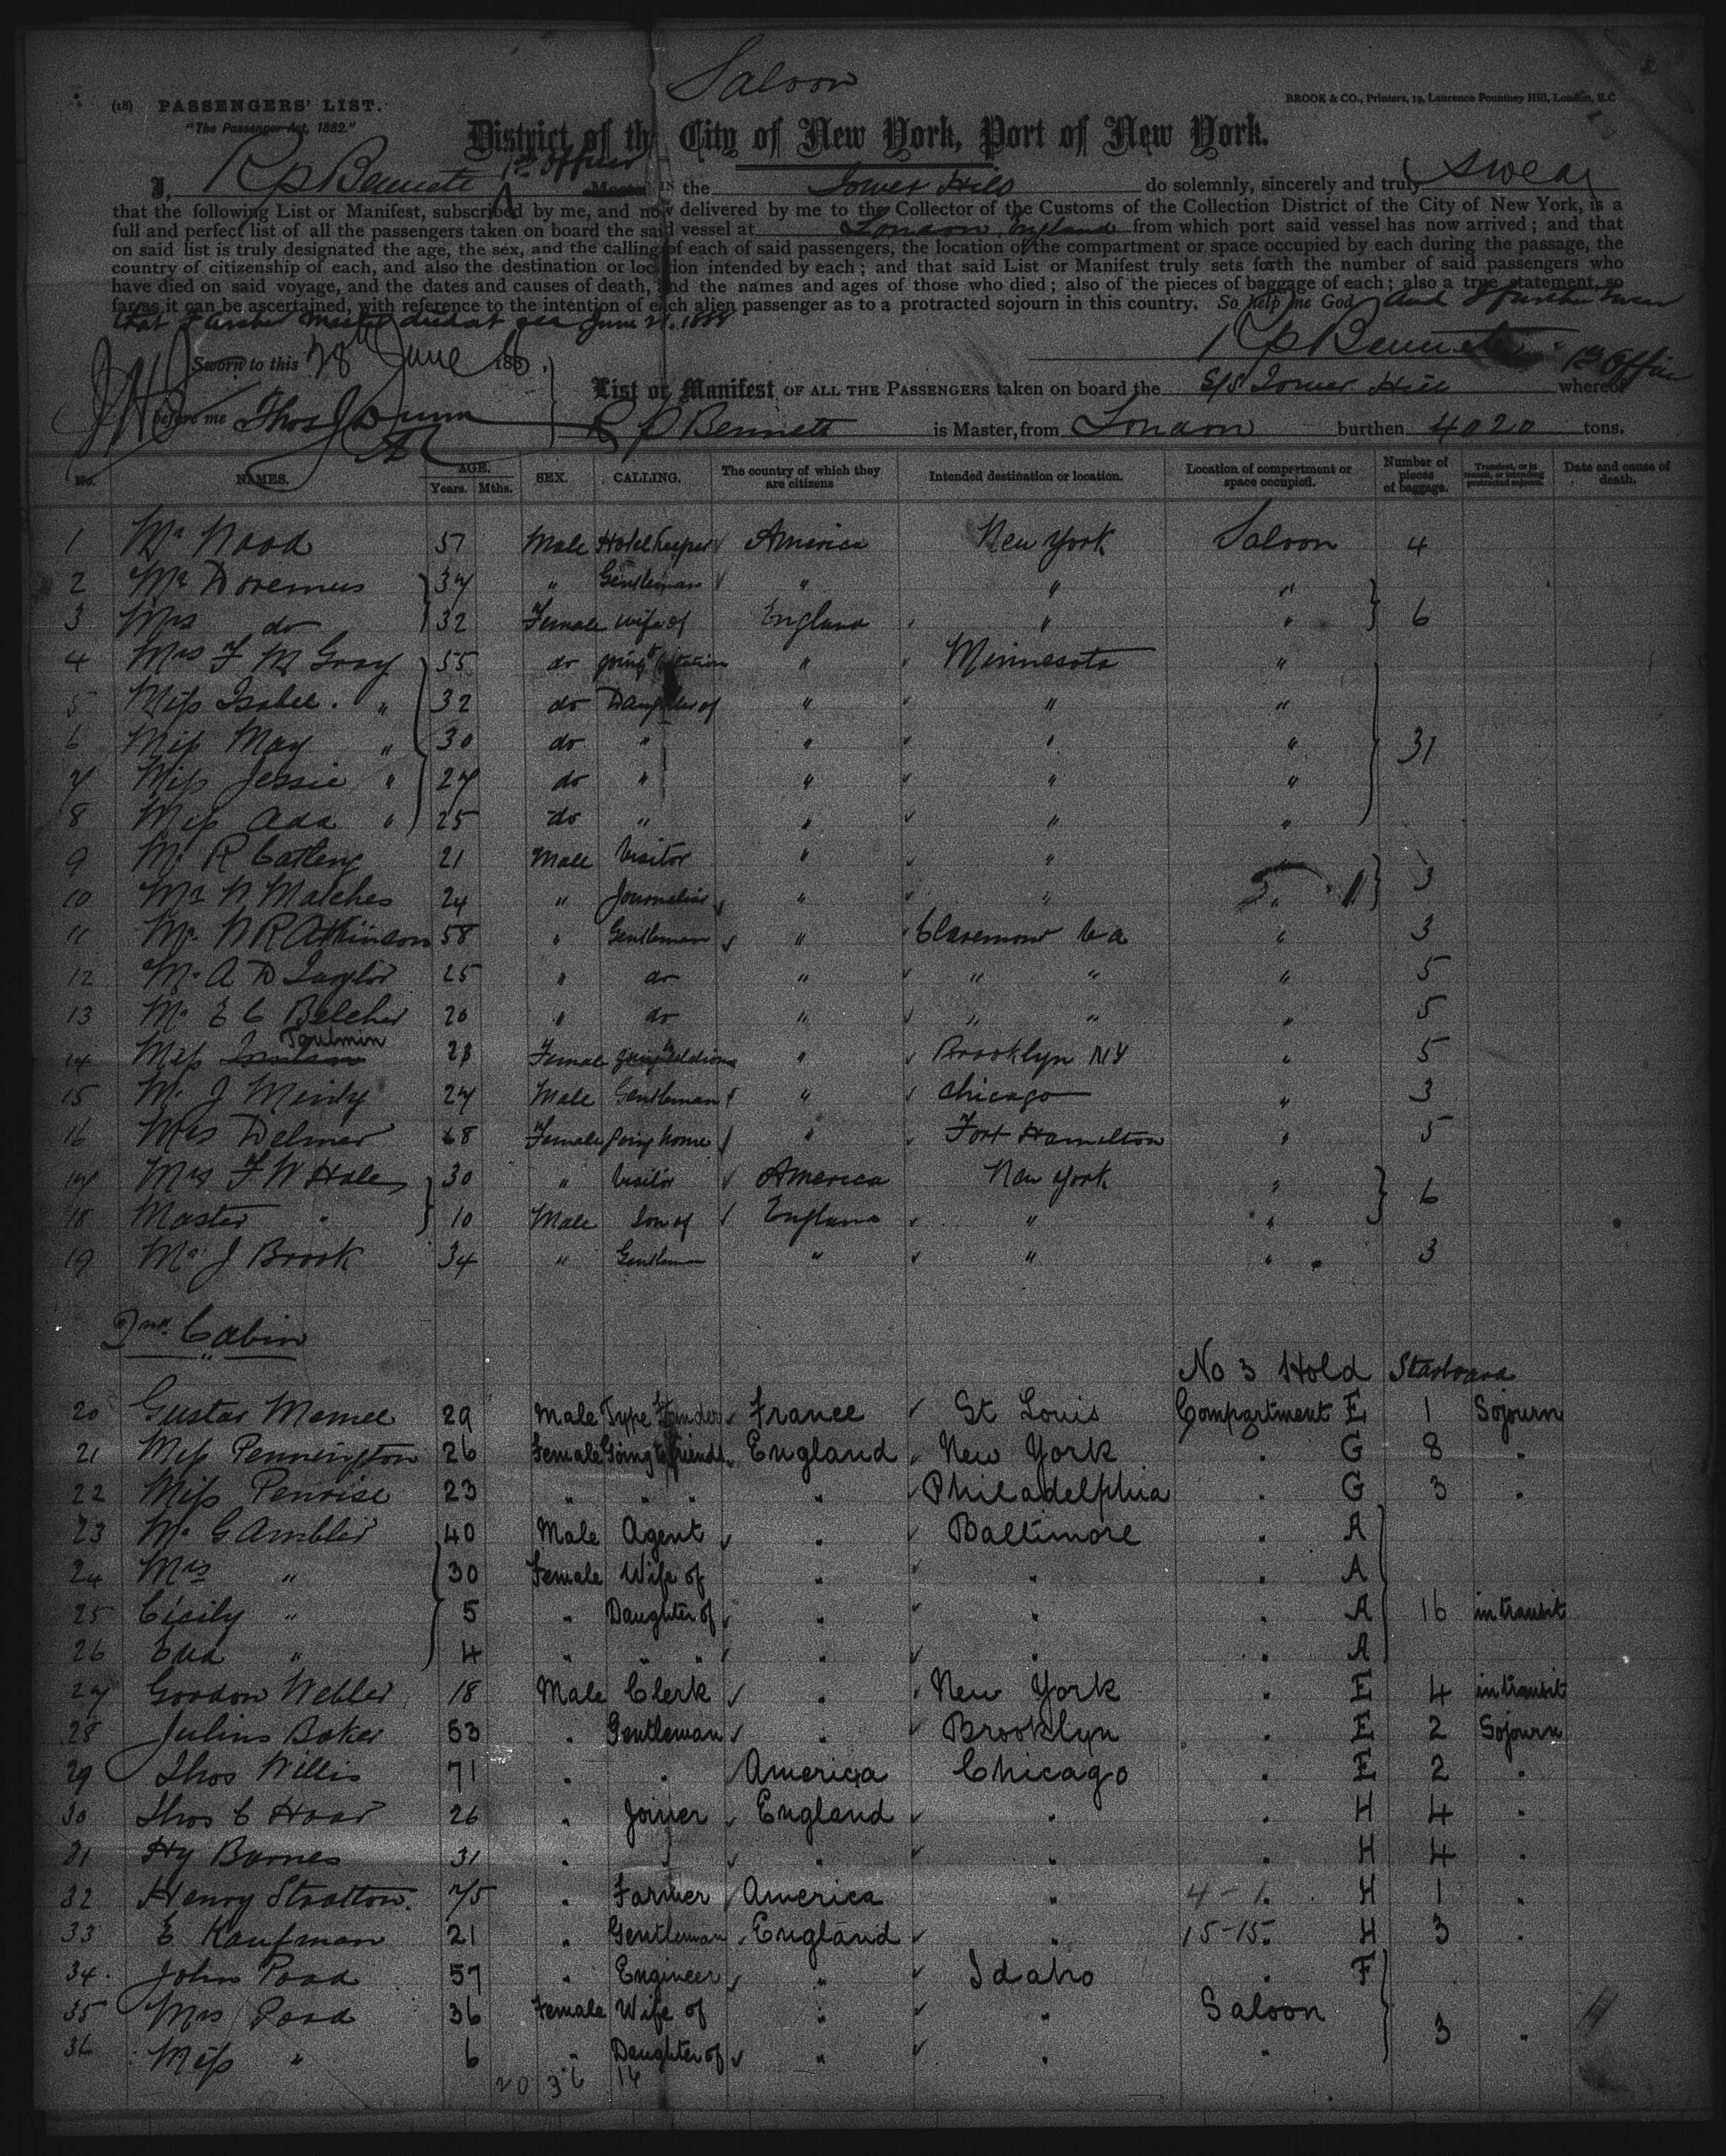 Saloon
(18) PASSENGERS' LIST.
BROOK & CO., Printers, 19, Laurence Pountney Hill, London, E.C
"The Passenger Act, 1882."
District of the City of New York, Port of New York.
I, R P Bennett 1st Officer Master IN the Tower Hill do solemnly, sincerely and truly swear
that the following List or Manifest, subscribed by me, and now delivered by me to the Collector of the Customs of the Collection District of the City of New York, is a
full and perfect list of all the passengers taken on board the said vessel at London England from which port said vessel has now arrived; and that
on said list is truly designated the age, the sex, and the calling of each of said passengers, the location of the compartment or space occupied by each during the passage, the
country of citizenship of each, and also the destination or location intended by each; and that said List or Manifest truly sets forth the number of said passengers who
have died on said voyage, and the dates and causes of death, and the names and ages of those who died; also of the pieces of baggage of each; also a true statement, so
far as it can be ascertained, with reference to the intention of each alien passenger as to a protracted sojourn in this country. So help me God And I further swear
that died at sea June 21. 1888
R P Bennett 1st Officer
Sworn to this 28th June 188
List or Manifest OF ALL THE PASSENGERS taken on board the S/S Tower Hill whereof
before me Thos J Dunn
R P Bennett is Master, from London burthen 4020 tons.
No. NAMES. AGE. Years. Mths. SEX. CALLING. The country of which they are citizens Intended destination or location. Location of compartment or space occupied. Number of pieces of baggage. Transient, or in transit, or intending protracted sojourn. Date and cause of death.
1 Mr Wood 57 Male Hotel keeper America New York Saloon 4
2 Mr Doremus 34 " Gentleman " " "
3 Mrs do 32 Female wife of England " " 6
4 Mrs F M Gray 55 do going to " Minnesota "
5 Miss Isabel. " 32 do Daughter of " " "
6 Miss May " 30 do " " " " 31
7 Miss Jessie " 27 do " " " "
8 Miss Ada " 25 do " " " "
9 Mr R Catleny 21 Male Visitor " "
10 Mr W Malches 24 " Journalist " " " 3
11 Mr W R Atkinson 58 " Gentleman " Claremont Va " 3
12 Mr A D Taylor 25 " do " " " " 5
13 Mr E C Belcher 20 " do " " " " 5
14 Miss Toulmin 28 Female going to relations " Brooklyn NY " 5
15 Mr J Minty 27 Male Gentleman " Chicago " 3
16 Mrs Delmar 68 Female going home " Fort Hamilton " 5
17 Mrs F W Hales 30 " Visitor America New York "
18 Master " 10 Male Son of England " " 6
19 Mr J Brook 34 " Gentleman " " " 3
2nd Cabin
No 3 Hold Starboard
20 Gustav Memel 29 Male Type Founder France St Louis Compartment E 1 Sojourn
21 Miss Pennington 26 Female Going to friends England New York " G 8 "
22 Miss Penrise 23 " " " " Philadelphia " G 3 "
23 Mr G Ambler 40 Male Agent " Baltimore " A
24 Mrs " 30 Female Wife of " " " A
25 Cicily " 5 " Daughter of " " " A 16 in transit
26 Eva " 4 " " " " " " A
27 Gordon Webber 18 Male Clerk " New York " E 4 in transit
28 Julius Baker 53 " Gentleman " Brooklyn " E 2 Sojourn
29 Thos Willis 71 " " America Chicago " E 2 "
30 Thos C Hoar 26 " Joiner England " " H 4 "
31 Hy Barnes 31 " " " " " H 4 "
32 Henry Stratton. 75 " Farmer America " 4 - 1. H 1 "
33 E Kaufman 21 " Gentleman England " 15-15. H 3 "
34. John Poad 57 " Engineer " Idaho " F
35 Mrs Poad 36 Female Wife of " " Saloon
36 Miss " 6 " Daughter of " " " 3 "
20 36 16